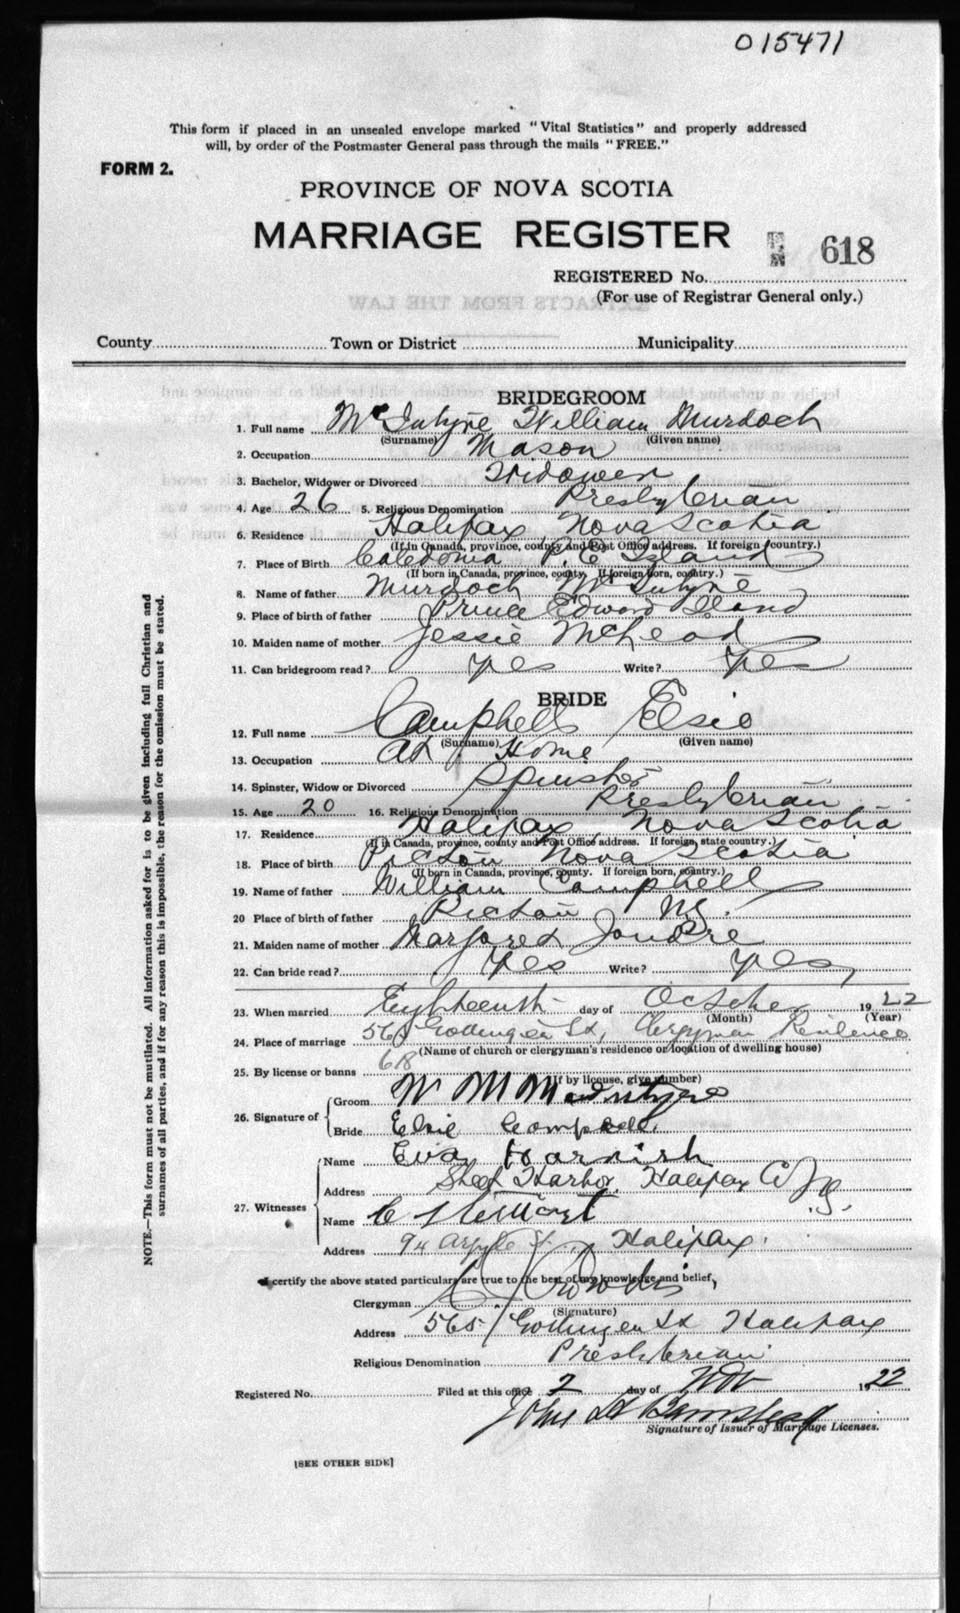 015471
This form if placed in an unsealed envelope marked "Vital Statistics" and properly addressed
will, by order of the Postmaster General pass through the mails "FREE."
FORM 2.
PROVINCE OF NOVA SCOTIA
MARRIAGE REGISTER
618
REGISTERED No.
(For use of Registrar General only.)
County Town or District Municipality
BRIDEGROOM
1. Full name McIntyre William Murdoch
(Surname) (Given name)
2. Occupation Mason
3. Bachelor, Widower or Divorced Widower
4. Age 26 5. Religious Denomination Presbyterian
6. Residence Halifax Nova Scotia
(If in Canada, province, county and Post Office address. If foreign country.)
7. Place of Birth Caledonia P. E. Island
(If born in Canada, province, county. If foreign born, country.)
8. Name of father Murdoch McIntyre
9. Place of birth of father Prince Edward Island
10. Maiden name of mother Jessie McLeod
11. Can bridegroom read? yes Write? yes
BRIDE
12. Full name Campbell Elsie
(Surname) (Given name)
13. Occupation At Home
14. Spinster, Widow or Divorced Spinster
15. Age 20 16. Religious Denomination Presbyterian
17. Residence Halifax, Nova Scotia
(If in Canada, province, county and Post Office address. If foreign, state country.)
18. Place of birth Pictou Nova Scotia
(If born in Canada, province, county. If foreign born, country.)
19. Name of father William Campbell
20 Place of birth of father Pictou N.S.
21. Maiden name of mother Margaret
22. Can bride read? yes Write? yes,
23. When married Eighteenth day of October 1922
(Month) (Year)
24. Place of marriage 565 Gottingen St, Clergyman Residence
(Name of church or clergyman's residence or location of dwelling house)
25. By license or banns 618
(If by license, give number)
26. Signature of Groom W M McIntyre
Bride Elsie Campbell
27. Witnesses Name Eva Harnish
Address Sheet Harbor, Halifax Co N.S.
Name C Stewart
Address 94 Argyle St., Halifax.
I certify the above stated particulars are true to the best of my knowledge and belief,
Clergyman
(Signature)
Address 565 Gottingen St Halifax
Religious Denomination Presbyterian
Registered No. Filed at this office 2 day of Nov 1922
John
Signature of Issuer of Marriage Licenses.
[SEE OTHER SIDE]
NOTE.—This form must not be mutilated. All information asked for is to be given including full Christian and
surnames of all parties, and if for any reason this is impossible, the reason for the omission must be stated.